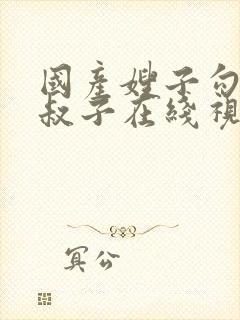 國產嫂子勾
叔子在綫視
冥公